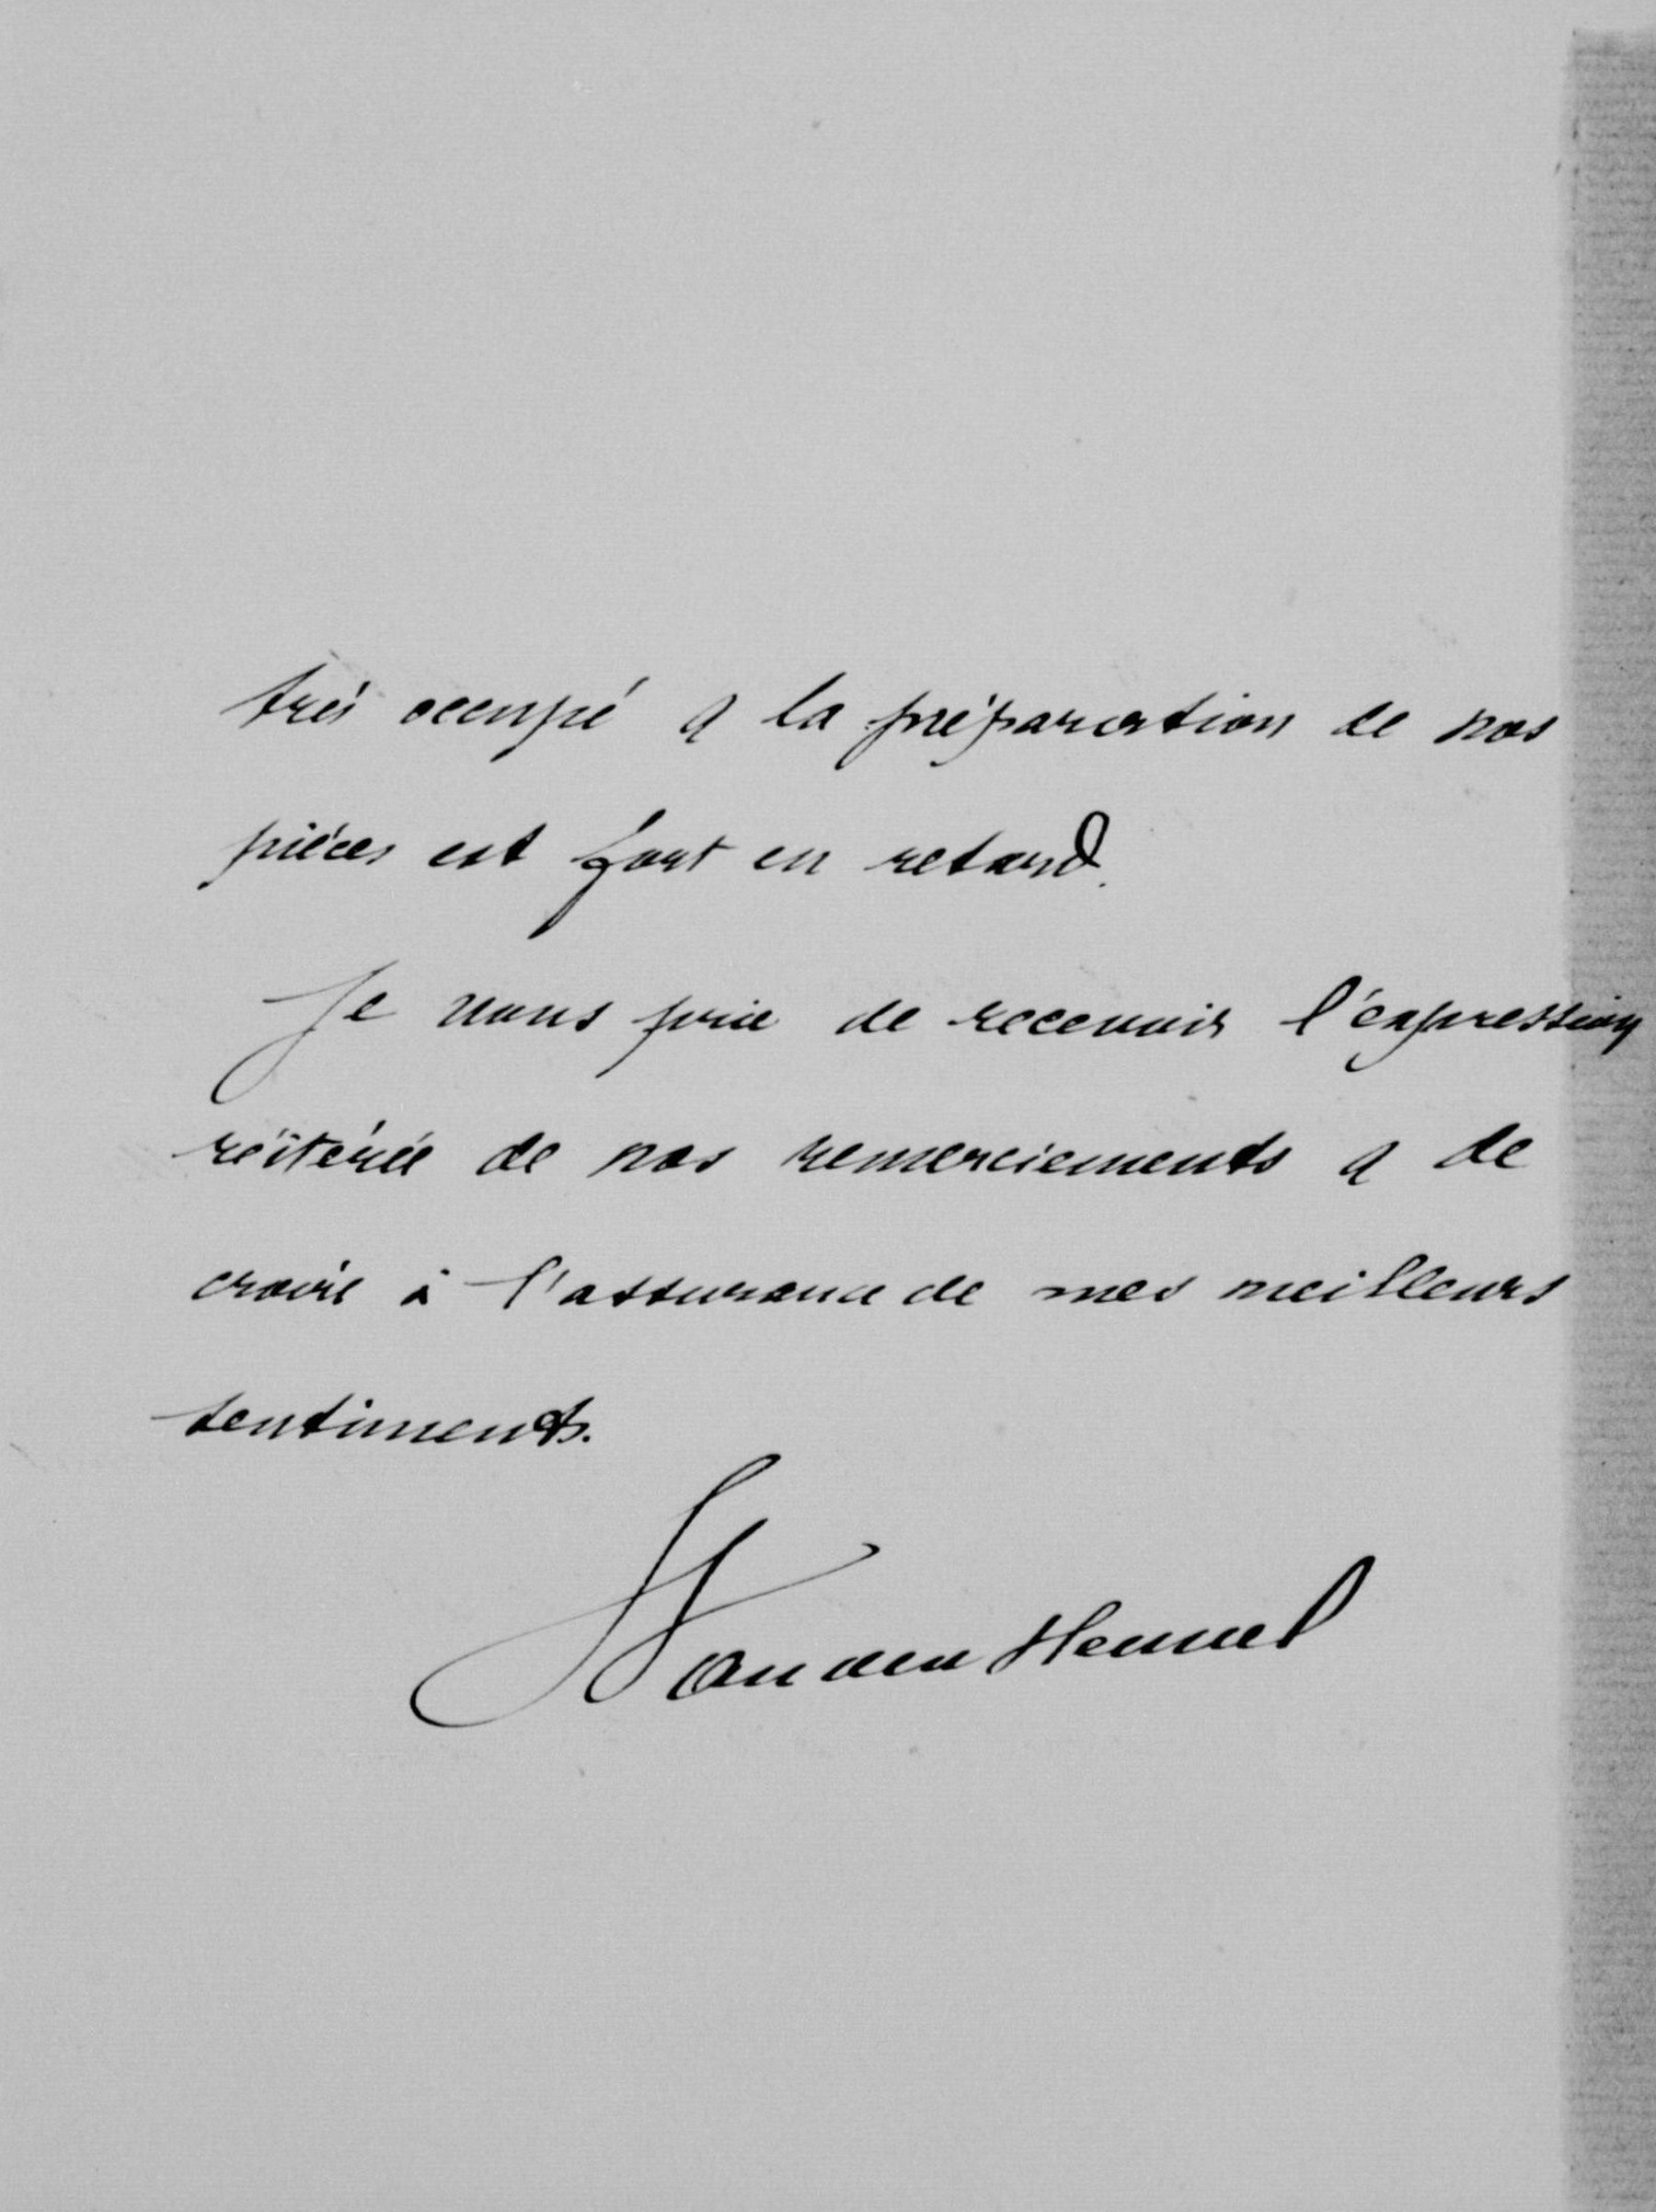 très occupé & la préparation de nos
pièces est fort en retard.
Je vous prie de recevoir l'expression
réïtérée de nos remerciements & de
croire à l'assurance de mes meilleurs
sentiments.